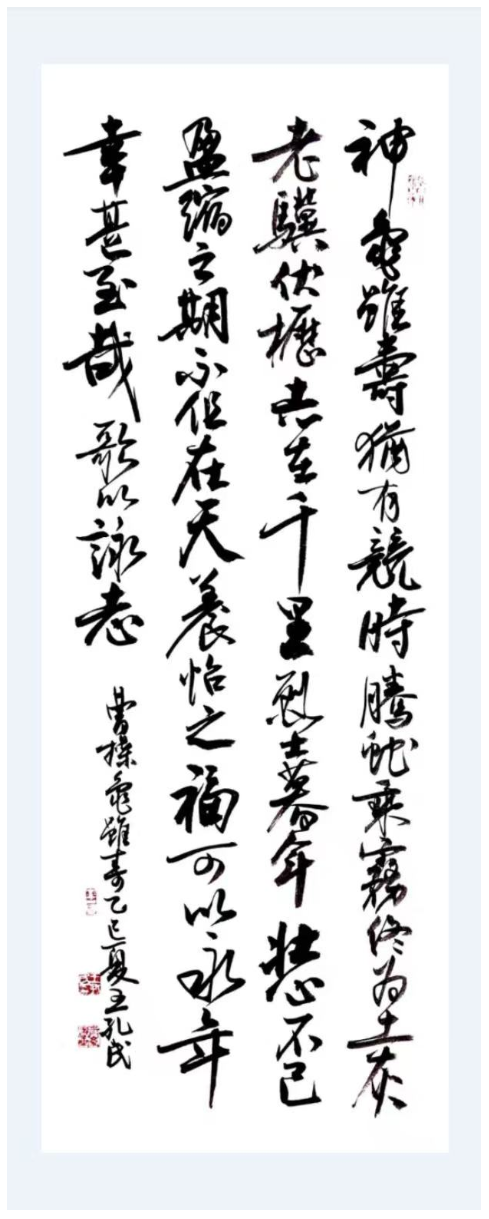 神龜雖壽猶有競時騰蛇乘霧終為土灰
老驥伏櫪志在千里烈士暮年壯心不已
盈縮之期不但在天養怡之福可以永年
幸甚至哉歌以詠志
曹操龜雖寿乙巳夏王孔民